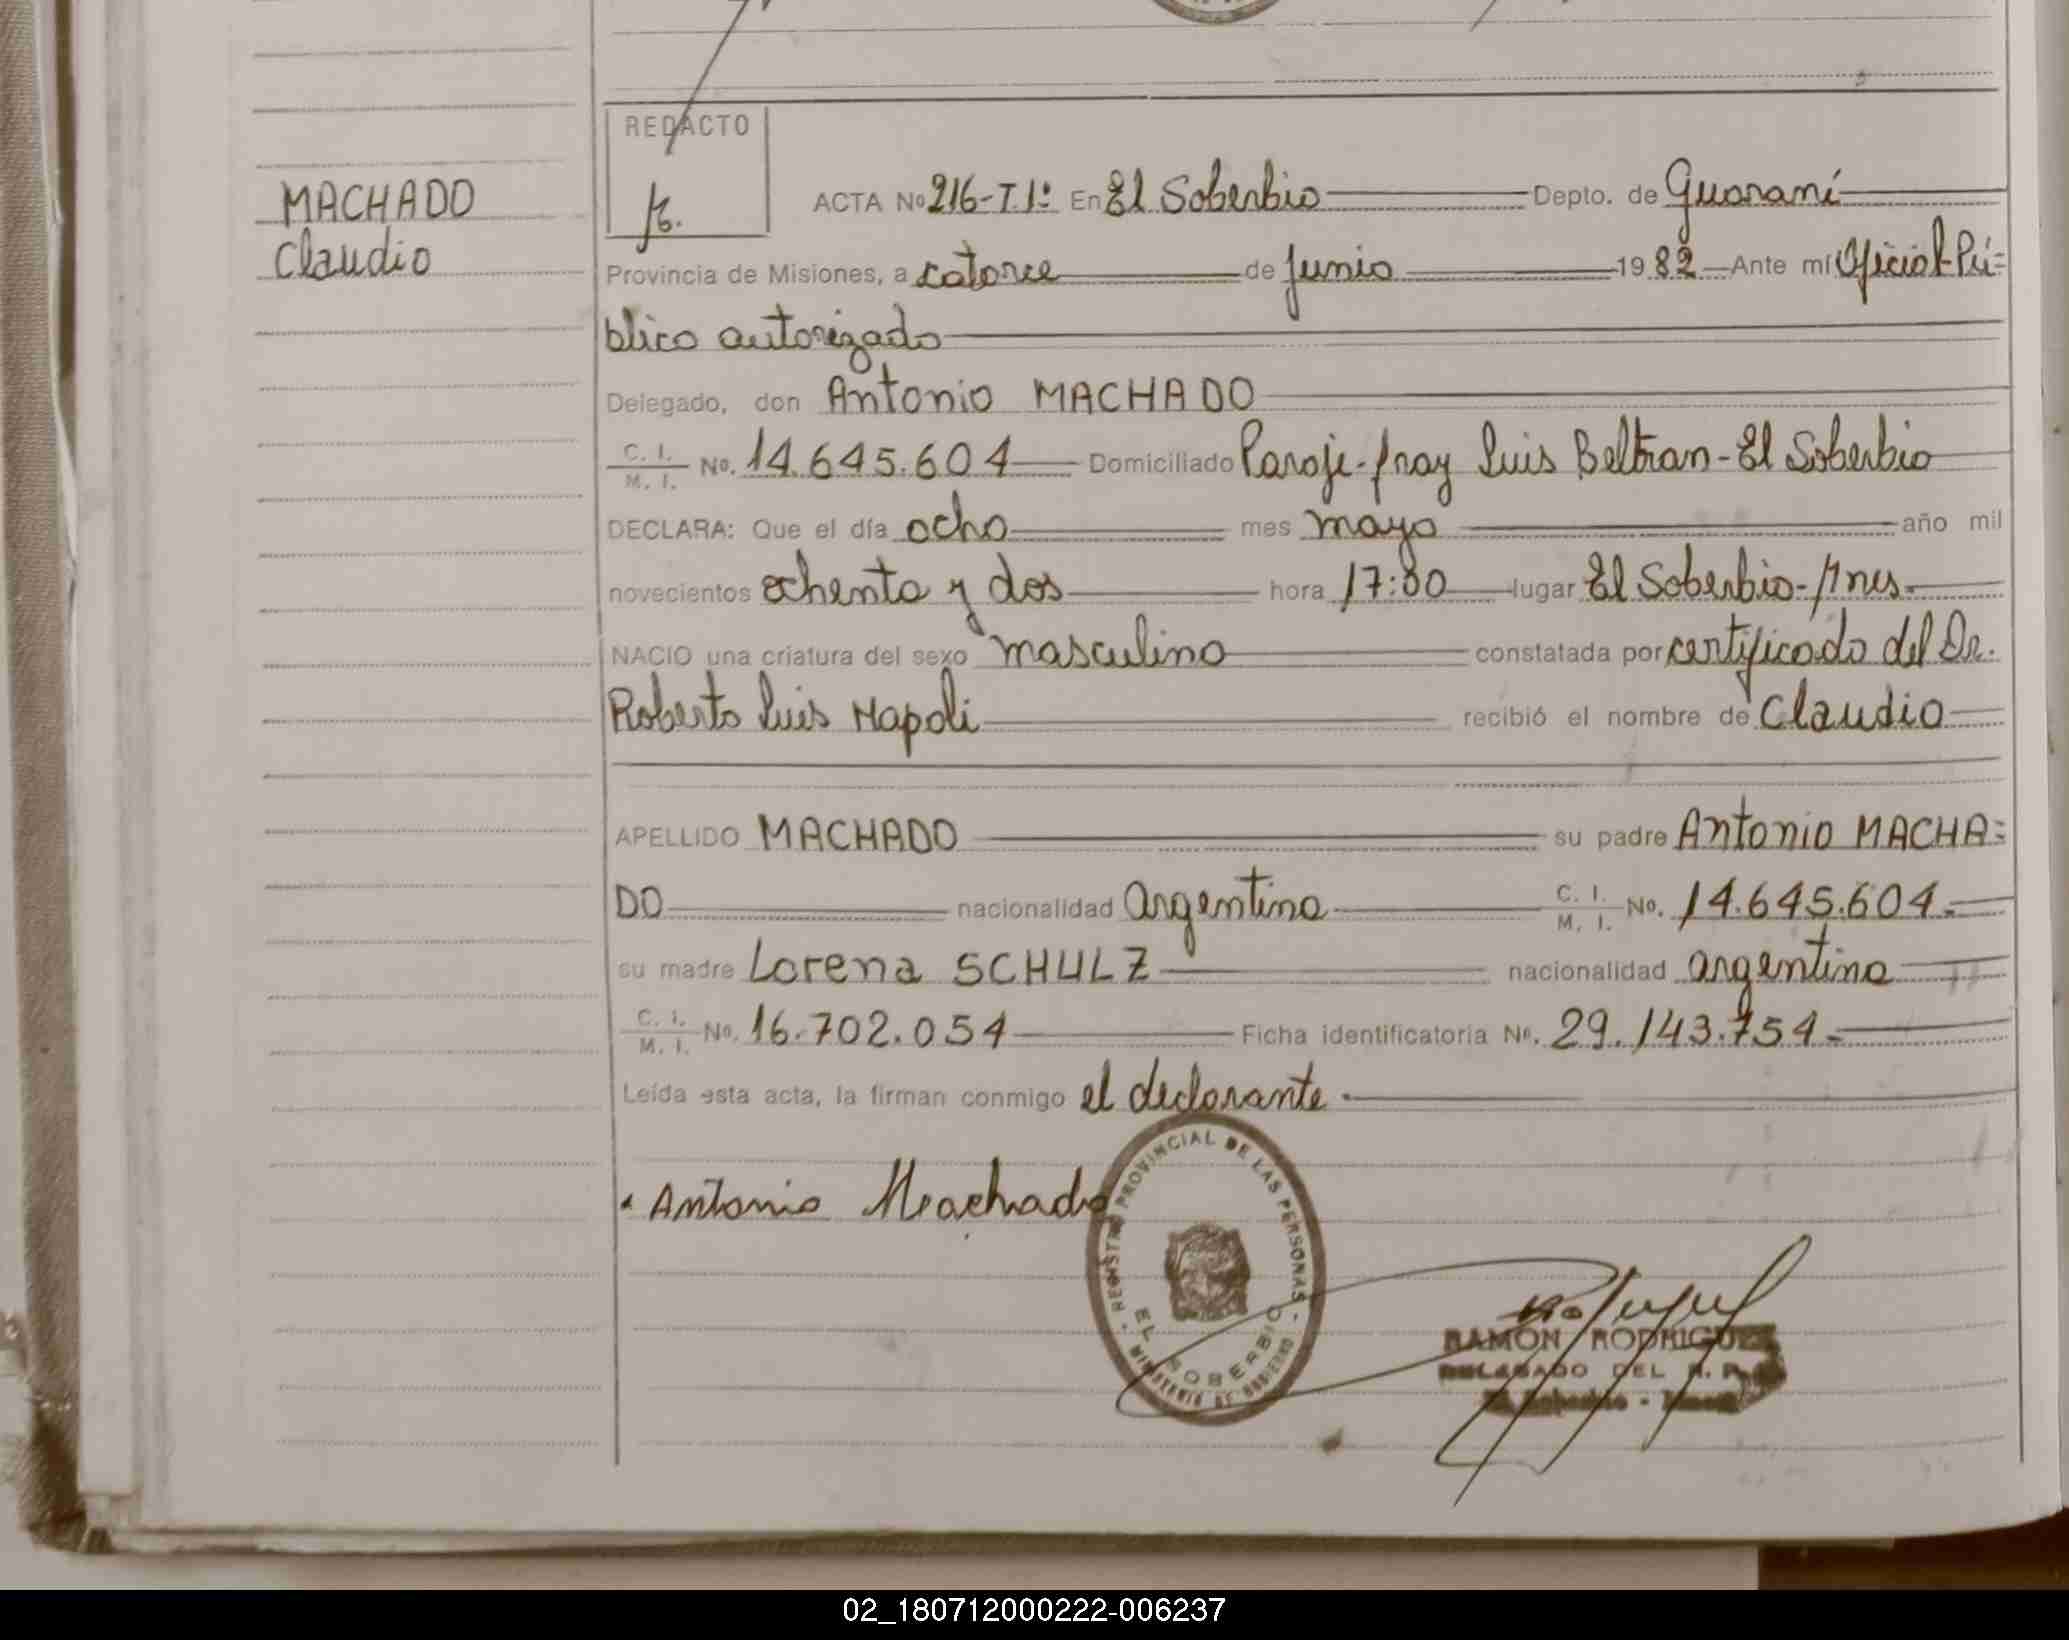 REDACTO
MACHADO
Claudio
ACTA No 216-T.1º En El Soberbio Depto. de Guaraní
Provincia de Misiones, a catorce de junio 1982 Ante mí Oficial Pú=
blico autorizado
Delegado, don Antonio MACHADO
C. I.
M. I. No. 14.645.604 Domiciliado Paraje-fray Luis Beltran-El Soberbio
DECLARA: Que el día ocho mes mayo año mil
novecientos ochenta y dos hora 17:00 lugar El Soberbio-Mnes.
NACIO una criatura del sexo masculino constatada por certificado del Dr.
Roberto Luis Napoli recibió el nombre de Claudio
APELLIDO MACHADO su padre Antonio MACHA=
DO nacionalidad argentina C. I.
M. I. No. 14.645.604.
su madre Lorena SCHULZ nacionalidad argentina
C. I.
M. I. No. 16.702.054 Ficha identificatoria No. 29.143.754.
Leída esta acta, la firman conmigo el declarante.
Antonio Machado
REGISTRO PROVINCIAL DE LAS PERSONAS
EL SOBERBIO
MINISTERIO DE GOBIERNO
RAMON RODRIGUEZ
DELEGADO DEL R. P.
El Soberbio -
02_180712000222-006237